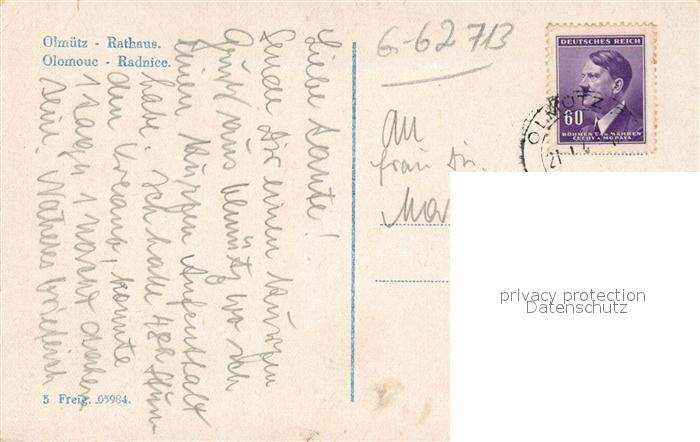 Olmütz - Rathaus.
Olomouc - Radnice.
Liebe Tante!
Sende Dir einen kurzen
Gruß aus Olmütz wo ich
einen kurzen Aufenthalt
habe. Ich habe 48h
den Kreant, konnte
1 Tag u 1 Nacht
sein. Näheres brieflich
5 Freig. 05984.
6-62713
An
Frau Dir.
DEUTSCHES REICH
60
BÖHMEN U. MÄHREN
ČECHY A MORAVA
OLMÜTZ
privacy protection
Datenschutz